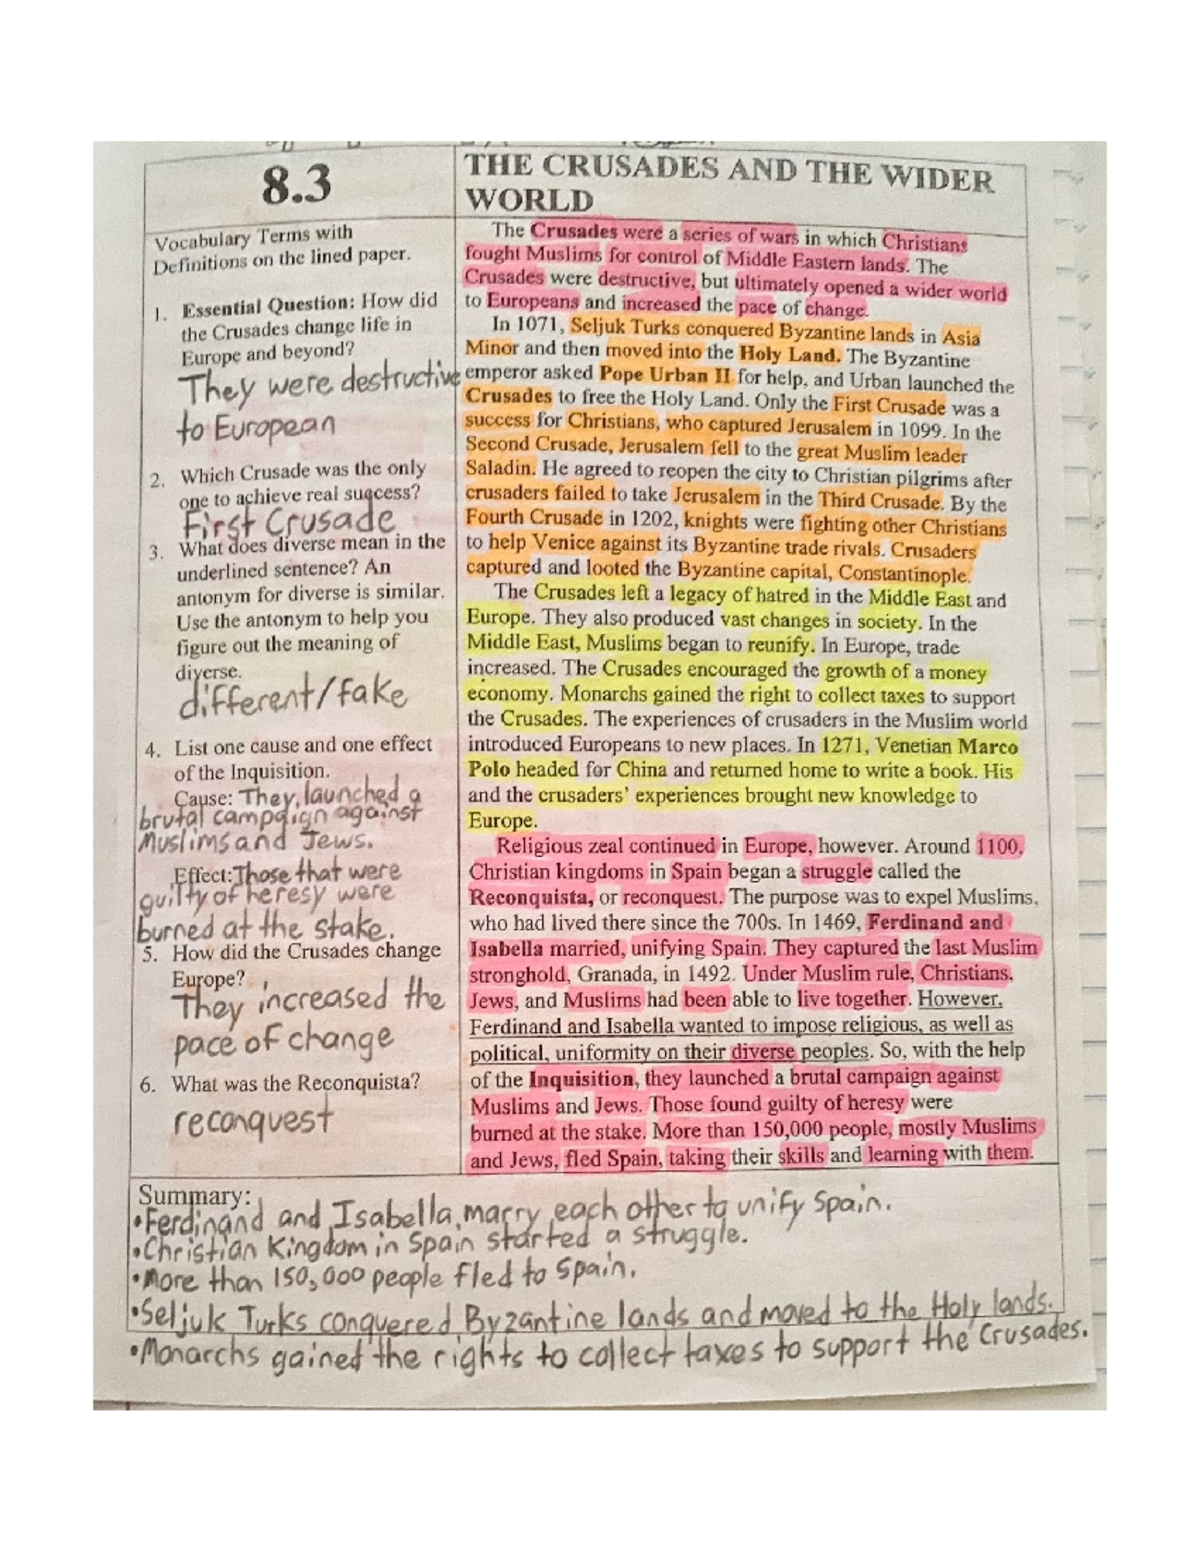 8.3
THE CRUSADES AND THE WIDER
WORLD
Vocabulary Terms with
Definitions on the lined paper.
1. Essential Question: How did
the Crusades change life in
Europe and beyond?
They were destructive
to European
2. Which Crusade was the only
one to achieve real success?
First Crusade
3. What does diverse mean in the
underlined sentence? An
antonym for diverse is similar.
Use the antonym to help you
figure out the meaning of
diverse.
different/fake
4. List one cause and one effect
of the Inquisition.
Cause: They launched a
brutal campaign against
Muslims and Jews.
Effect: Those that were
guilty of heresy were
burned at the stake.
5. How did the Crusades change
Europe?
They increased the
pace of change
6. What was the Reconquista?
reconquest
The Crusades were a series of wars in which Christians
fought Muslims for control of Middle Eastern lands. The
Crusades were destructive, but ultimately opened a wider world
to Europeans and increased the pace of change.
In 1071, Seljuk Turks conquered Byzantine lands in Asia
Minor and then moved into the Holy Land. The Byzantine
emperor asked Pope Urban II for help, and Urban launched the
Crusades to free the Holy Land. Only the First Crusade was a
success for Christians, who captured Jerusalem in 1099. In the
Second Crusade, Jerusalem fell to the great Muslim leader
Saladin. He agreed to reopen the city to Christian pilgrims after
crusaders failed to take Jerusalem in the Third Crusade. By the
Fourth Crusade in 1202, knights were fighting other Christians
to help Venice against its Byzantine trade rivals. Crusaders
captured and looted the Byzantine capital, Constantinople.
The Crusades left a legacy of hatred in the Middle East and
Europe. They also produced vast changes in society. In the
Middle East, Muslims began to reunify. In Europe, trade
increased. The Crusades encouraged the growth of a money
economy. Monarchs gained the right to collect taxes to support
the Crusades. The experiences of crusaders in the Muslim world
introduced Europeans to new places. In 1271, Venetian Marco
Polo headed for China and returned home to write a book. His
and the crusaders' experiences brought new knowledge to
Europe.
Religious zeal continued in Europe, however. Around 1100,
Christian kingdoms in Spain began a struggle called the
Reconquista, or reconquest. The purpose was to expel Muslims,
who had lived there since the 700s. In 1469, Ferdinand and
Isabella married, unifying Spain. They captured the last Muslim
stronghold, Granada, in 1492. Under Muslim rule, Christians,
Jews, and Muslims had been able to live together. However,
Ferdinand and Isabella wanted to impose religious, as well as
political, uniformity on their diverse peoples. So, with the help
of the Inquisition, they launched a brutal campaign against
Muslims and Jews. Those found guilty of heresy were
burned at the stake. More than 150,000 people, mostly Muslims
and Jews, fled Spain, taking their skills and learning with them.
Summary:
•Ferdinand and Isabella marry each other to unify Spain.
•Christian Kingdom in Spain started a struggle.
•More than 150,000 people fled to Spain.
•Seljuk Turks conquered Byzantine lands and moved to the Holy lands.
•Monarchs gained the rights to collect taxes to support the Crusades.